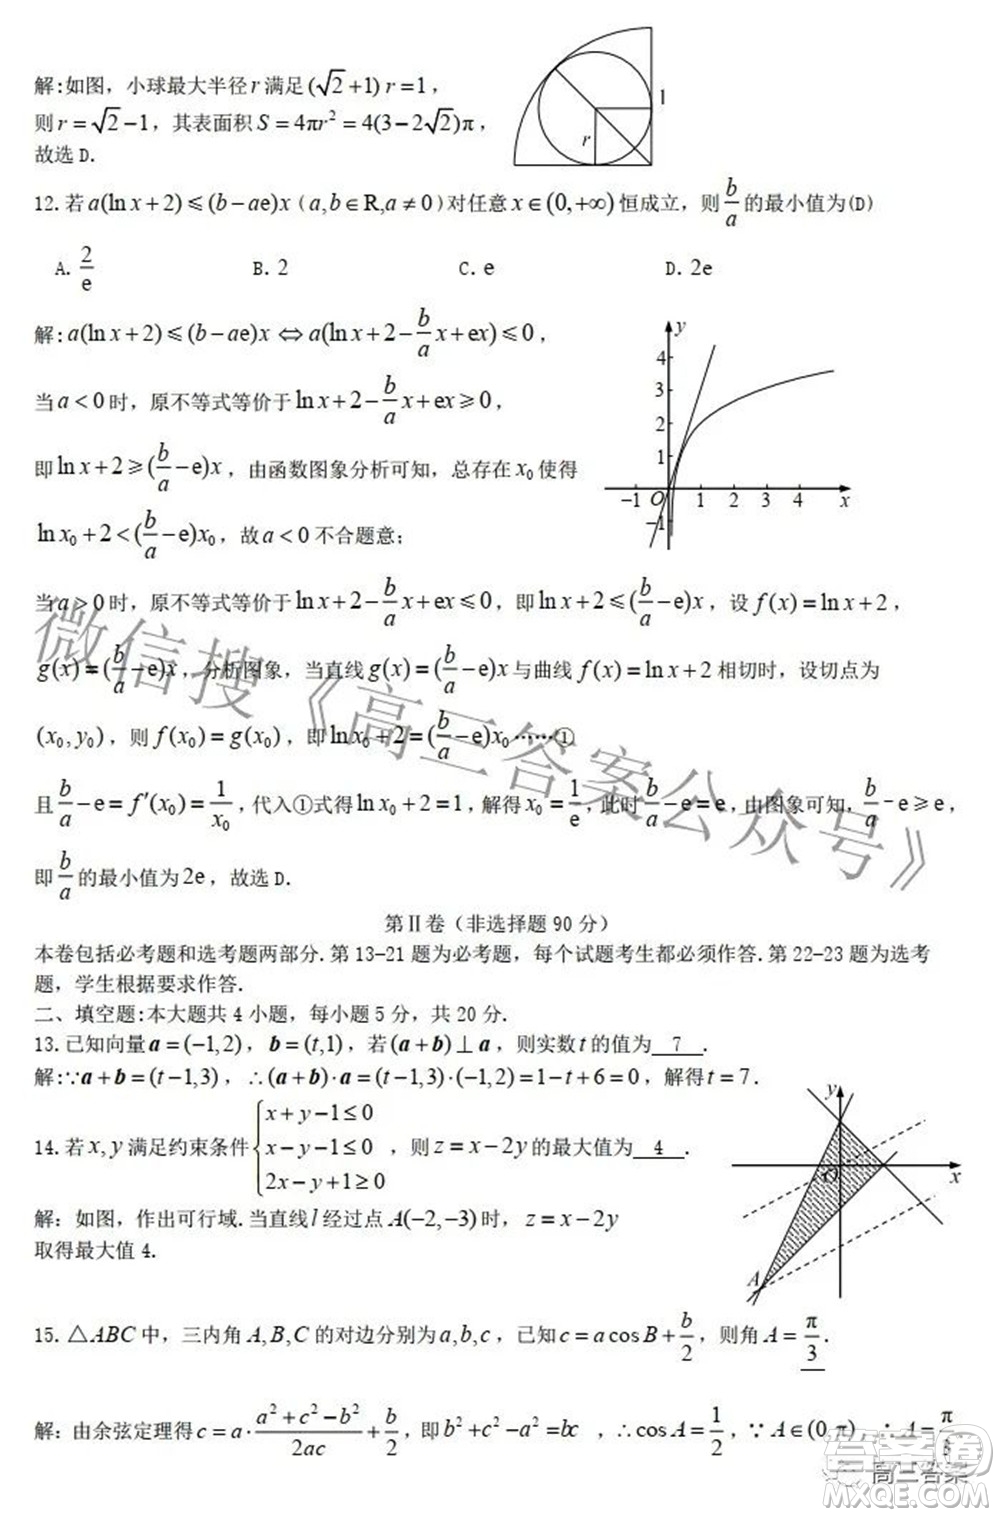 解:如图，小球最大半径r满足(√2+1)r=1，
则r=√2−1，其表面积S=4πr²=4(3−2√2)π，
故选D.
1
r
12.若a(ln x+2)⩽(b−ae)x(a,b∈R,a≠0)对任意x∈(0,+∞)恒成立，则b/a的最小值为(D)
A. 2/e B. 2 C. e D. 2e
解:a(ln x+2)⩽(b−ae)x⇔a(ln x+2−b/a x+ex)⩽0，
当a<0时，原不等式等价于ln x+2−b/a x+ex⩾0，
即ln x+2⩾(b/a−e)x，由函数图象分析可知，总存在x₀使得
ln x₀+2<(b/a−e)x₀，故a<0不合题意;
y
4
3
2
1
−1 O 1 2 3 4 x
−1
当a>0时，原不等式等价于ln x+2−b/a x+ex⩽0，即ln x+2⩽(b/a−e)x，设f(x)=ln x+2，
g(x)=(b/a−e)x，分析图象，当直线g(x)=(b/a−e)x与曲线f(x)=ln x+2相切时，设切点为
(x₀,y₀)，则f(x₀)=g(x₀)，即ln x₀+2=(b/a−e)x₀……①
且b/a−e=f′(x₀)=1/x₀，代入①式得ln x₀+2=1，解得x₀=1/e，此时b/a−e=e，由图象可知，b/a−e⩾e，
即b/a的最小值为2e，故选D.
微信搜《高三答案公众号》
第Ⅱ卷（非选择题90分）
本卷包括必考题和选考题两部分.第13-21题为必考题，每个试题考生都必须作答.第22-23题为选考
题，学生根据要求作答.
二、填空题:本大题共4小题，每小题5分，共20分.
13.已知向量a=(−1,2)，b=(t,1)，若(a+b)⊥a，则实数t的值为 7 .
解:∵a+b=(t−1,3)，∴(a+b)·a=(t−1,3)·(−1,2)=1−t+6=0，解得t=7.
14.若x,y满足约束条件{x+y−1≤0 x−y−1≤0 2x−y+1≥0，则z=x−2y的最大值为 4 .
解：如图，作出可行域.当直线l经过点A(−2,−3)时，z=x−2y
取得最大值4.
y
O
x
A
15.△ABC中，三内角A,B,C的对边分别为a,b,c，已知c=acosB+b/2，则角A=π/3.
解：由余弦定理得c=a·(a²+c²−b²)/2ac+b/2，即b²+c²−a²=bc ，∴cosA=1/2，∵A∈(0,π)，∴A=π/3
高三答案
答案圈
MXQE.COM